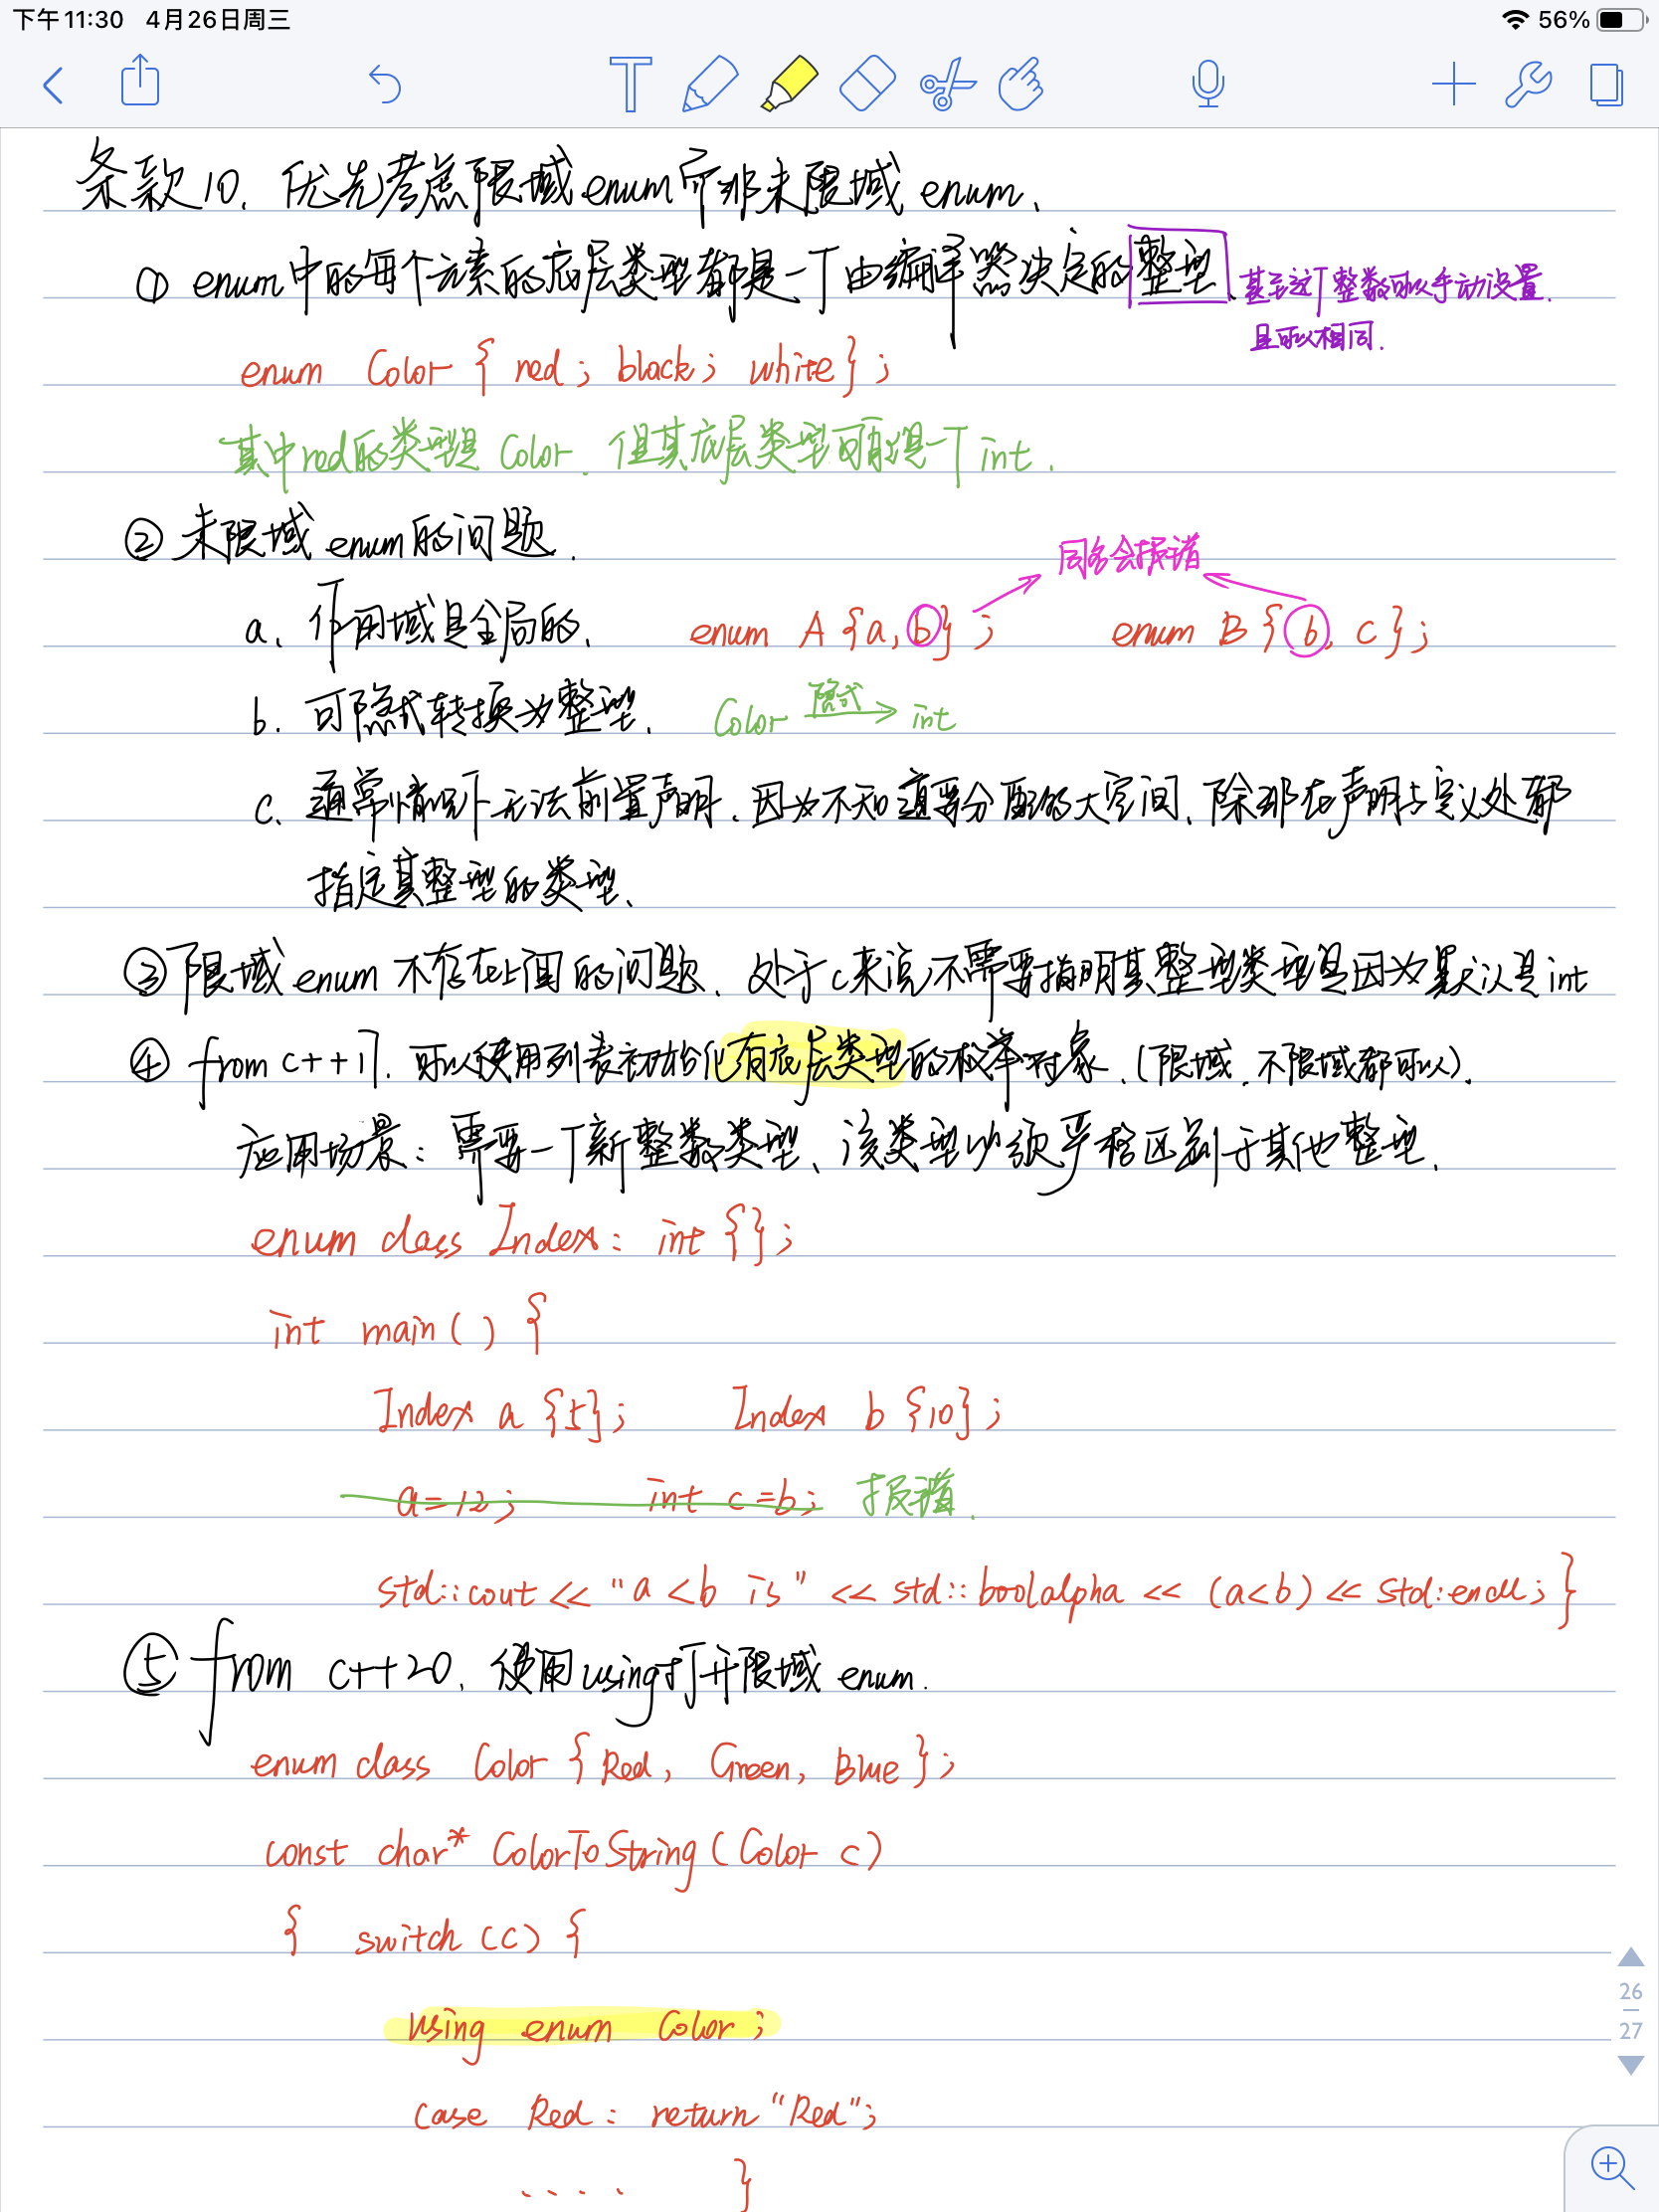 下午11:30 4月26日周三
56%
条款10. 优先考虑限域enum而非未限域 enum.
① enum中的每个元素的底层类型都是一个由编译器决定的整型 甚至这个整数可以手动设置.
且可以相同.
enum Color { red ; black ; white } ;
其中red的类型是 Color. 但其底层类型可能是一个 int .
② 未限域 enum 的问题.
同名会报错
a. 作用域是全局的. enum A {a, b} ; enum B { b, c } ;
b. 可隐式转换为整型. Color 隐式 int
c. 通常情况下无法前置声明. 因为不知道要分配的大空间. 除非在声明与定义处都
指定其整型的类型.
③ 限域 enum 不存在上面的问题. 处于c来说不需要指明其整型类型是因为默认是int
④ from c++17. 可以使用列表初始化有底层类型的枚举对象. (限域. 不限域都可以).
应用场景: 需要一个新整数类型. 该类型必须严格区别于其他整型.
enum class Index : int {} ;
int main ( ) {
Index a {5} ; Index b {10} ;
a=12 ; int c =b ; 报错.
std::cout << "a <b is" << std::boolalpha << (a<b) << std:endl ; }
⑤ from c++20. 使用using打开限域 enum.
enum class Color { Red, Green, Blue } ;
const char* ColorToString ( Color c )
{ switch (c) {
using enum Color ;
case Red : return "Red" ;
. . . . }
26
27